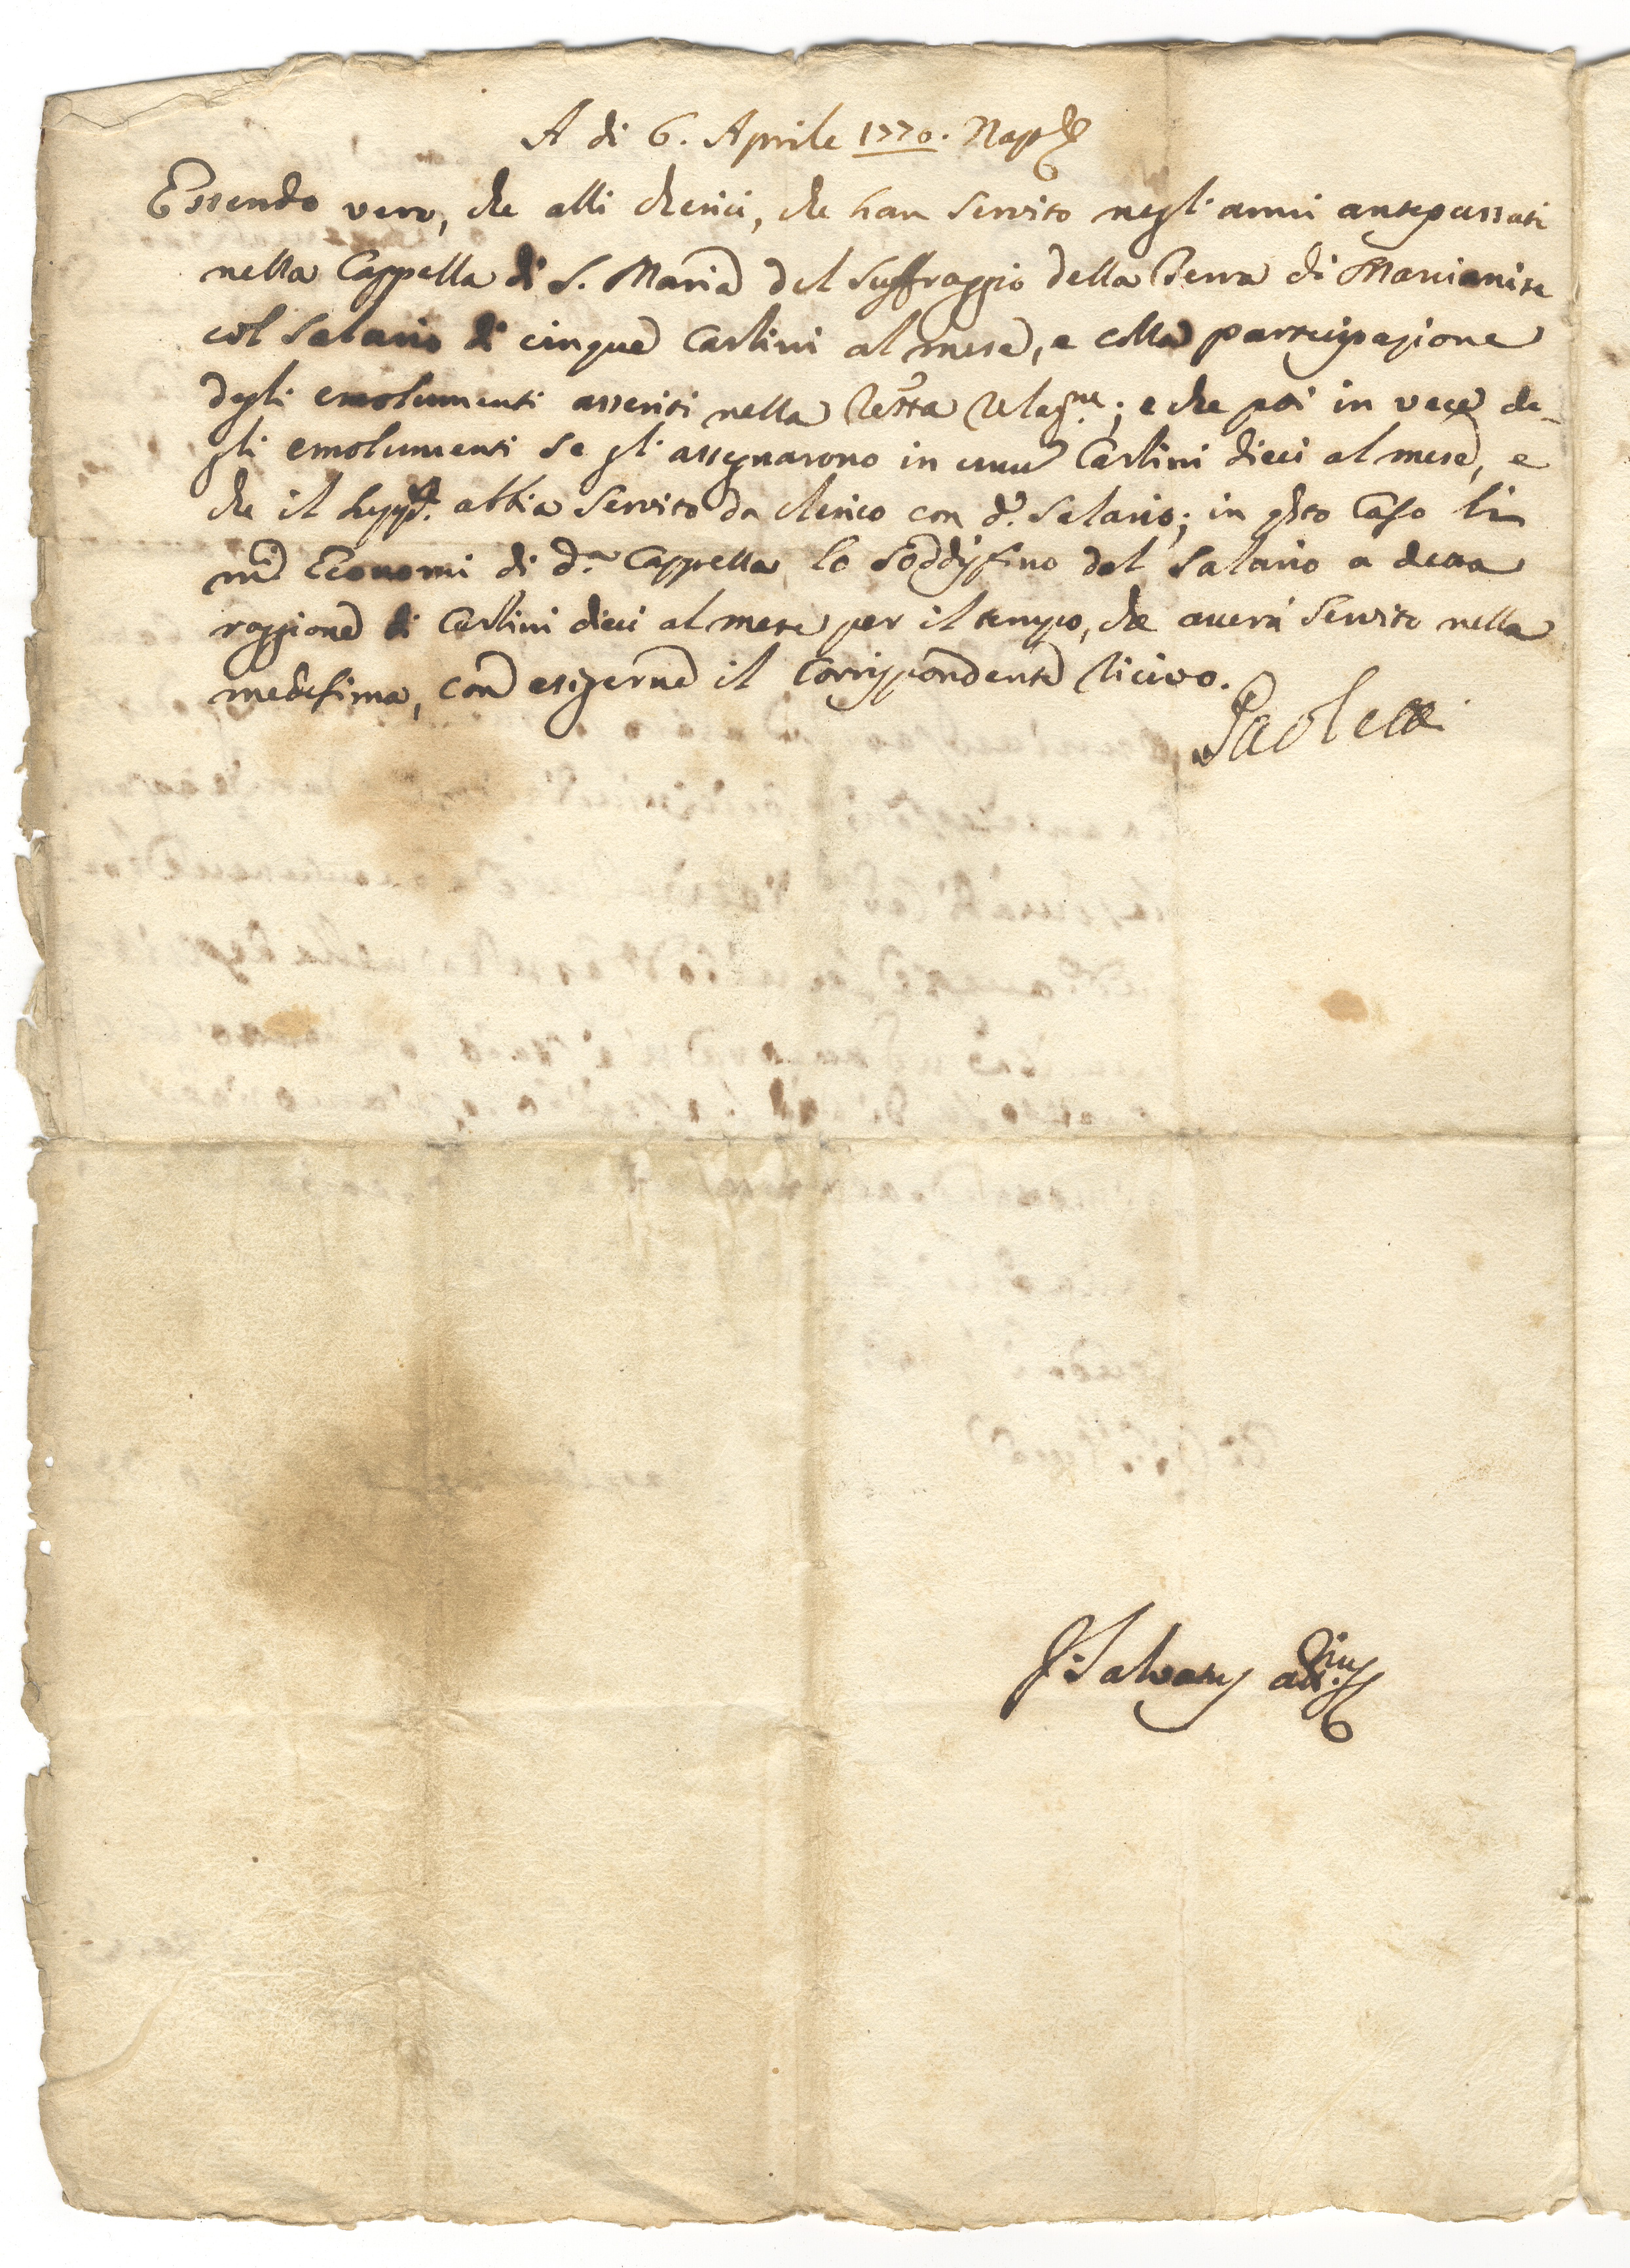 A di 6. Aprile 1770. Nap.
Essendo vero, che alli cherici, che han servito negl'anni antepassati
nella Cappella di S. Maria del Suffraggio della Terra di Marcianise
col salario di cinque Carlini al mese, e colla partecipazione
degli emolumenti asseriti nella retta relaz.ne; e che poi in vece de-
gli emolumenti se gl'assegnarono in unu Carlini dieci al mese, e
che il supp.te abbia servito da cherico con d.o salario; in q.sto caso li
m.ci Economi di d.a Cappella lo soddisfino del salario a detta
raggione di Carlini dieci al mese per il tempo, che averà servito nella
medesima, con esigerne il corrispondente ricivo.
Paoletti